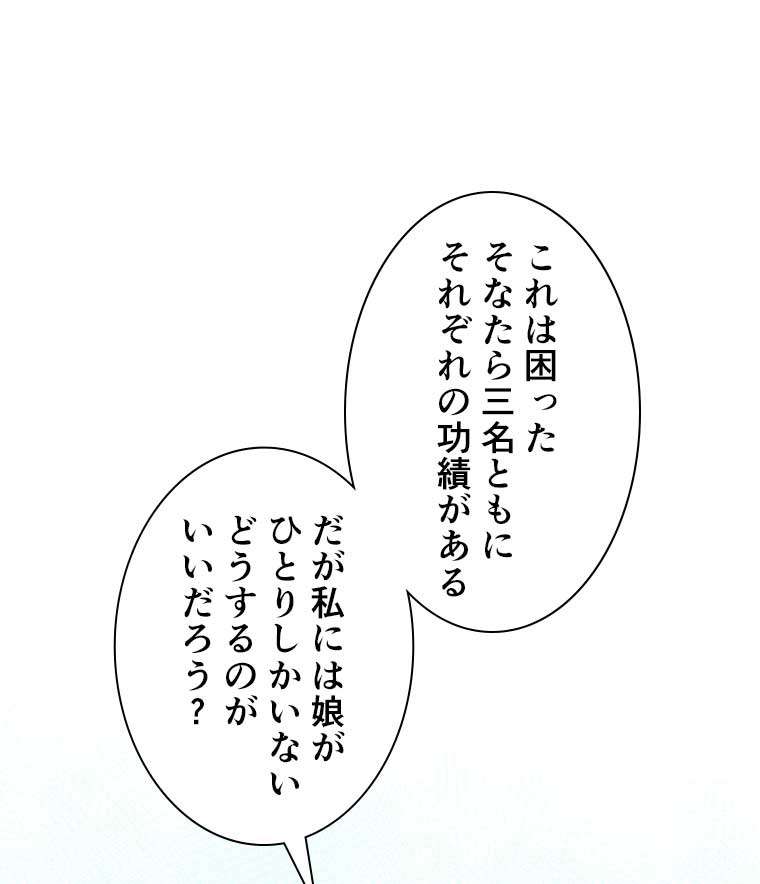 これは困った
そなたら三名ともに
それぞれの功績がある
だが私には娘が
ひとりしかいない
どうするのが
いいだろう？